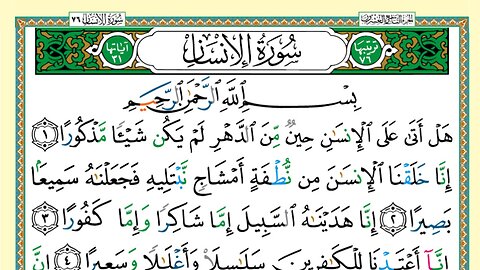 ٧٦ سُورَةُ الإِنسَانِ الجُزءُ التَّاسِعُ وَالعِشرُونَ
ترتيبها ٧٦ سُورَةُ الإِنسَانِ آياتها ٣١
بِسْمِ ٱللَّهِ ٱلرَّحْمَٰنِ ٱلرَّحِيمِ
هَلْ أَتَىٰ عَلَى ٱلْإِنسَٰنِ حِينٌ مِّنَ ٱلدَّهْرِ لَمْ يَكُن شَيْـًٔا مَّذْكُورًا ١
إِنَّا خَلَقْنَا ٱلْإِنسَٰنَ مِن نُّطْفَةٍ أَمْشَاجٍ نَّبْتَلِيهِ فَجَعَلْنَٰهُ سَمِيعًۢا
بَصِيرًا ٢ إِنَّا هَدَيْنَٰهُ ٱلسَّبِيلَ إِمَّا شَاكِرًا وَإِمَّا كَفُورًا ٣
إِنَّآ أَعْتَدْنَا لِلْكَٰفِرِينَ سَلَٰسِلَا۟ وَأَغْلَٰلًا وَسَعِيرًا ٤ إِنَّ